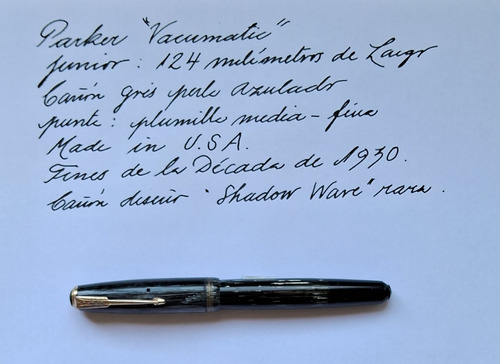 Parker "Vacumatic"
junior : 124 milímetros de Largo
Cañón gris perla azulado
punta : plumilla media - fina
Made in U.S.A.
Fines de la Década de 1930.
Cañón diseño "Shadow Wave" rara.